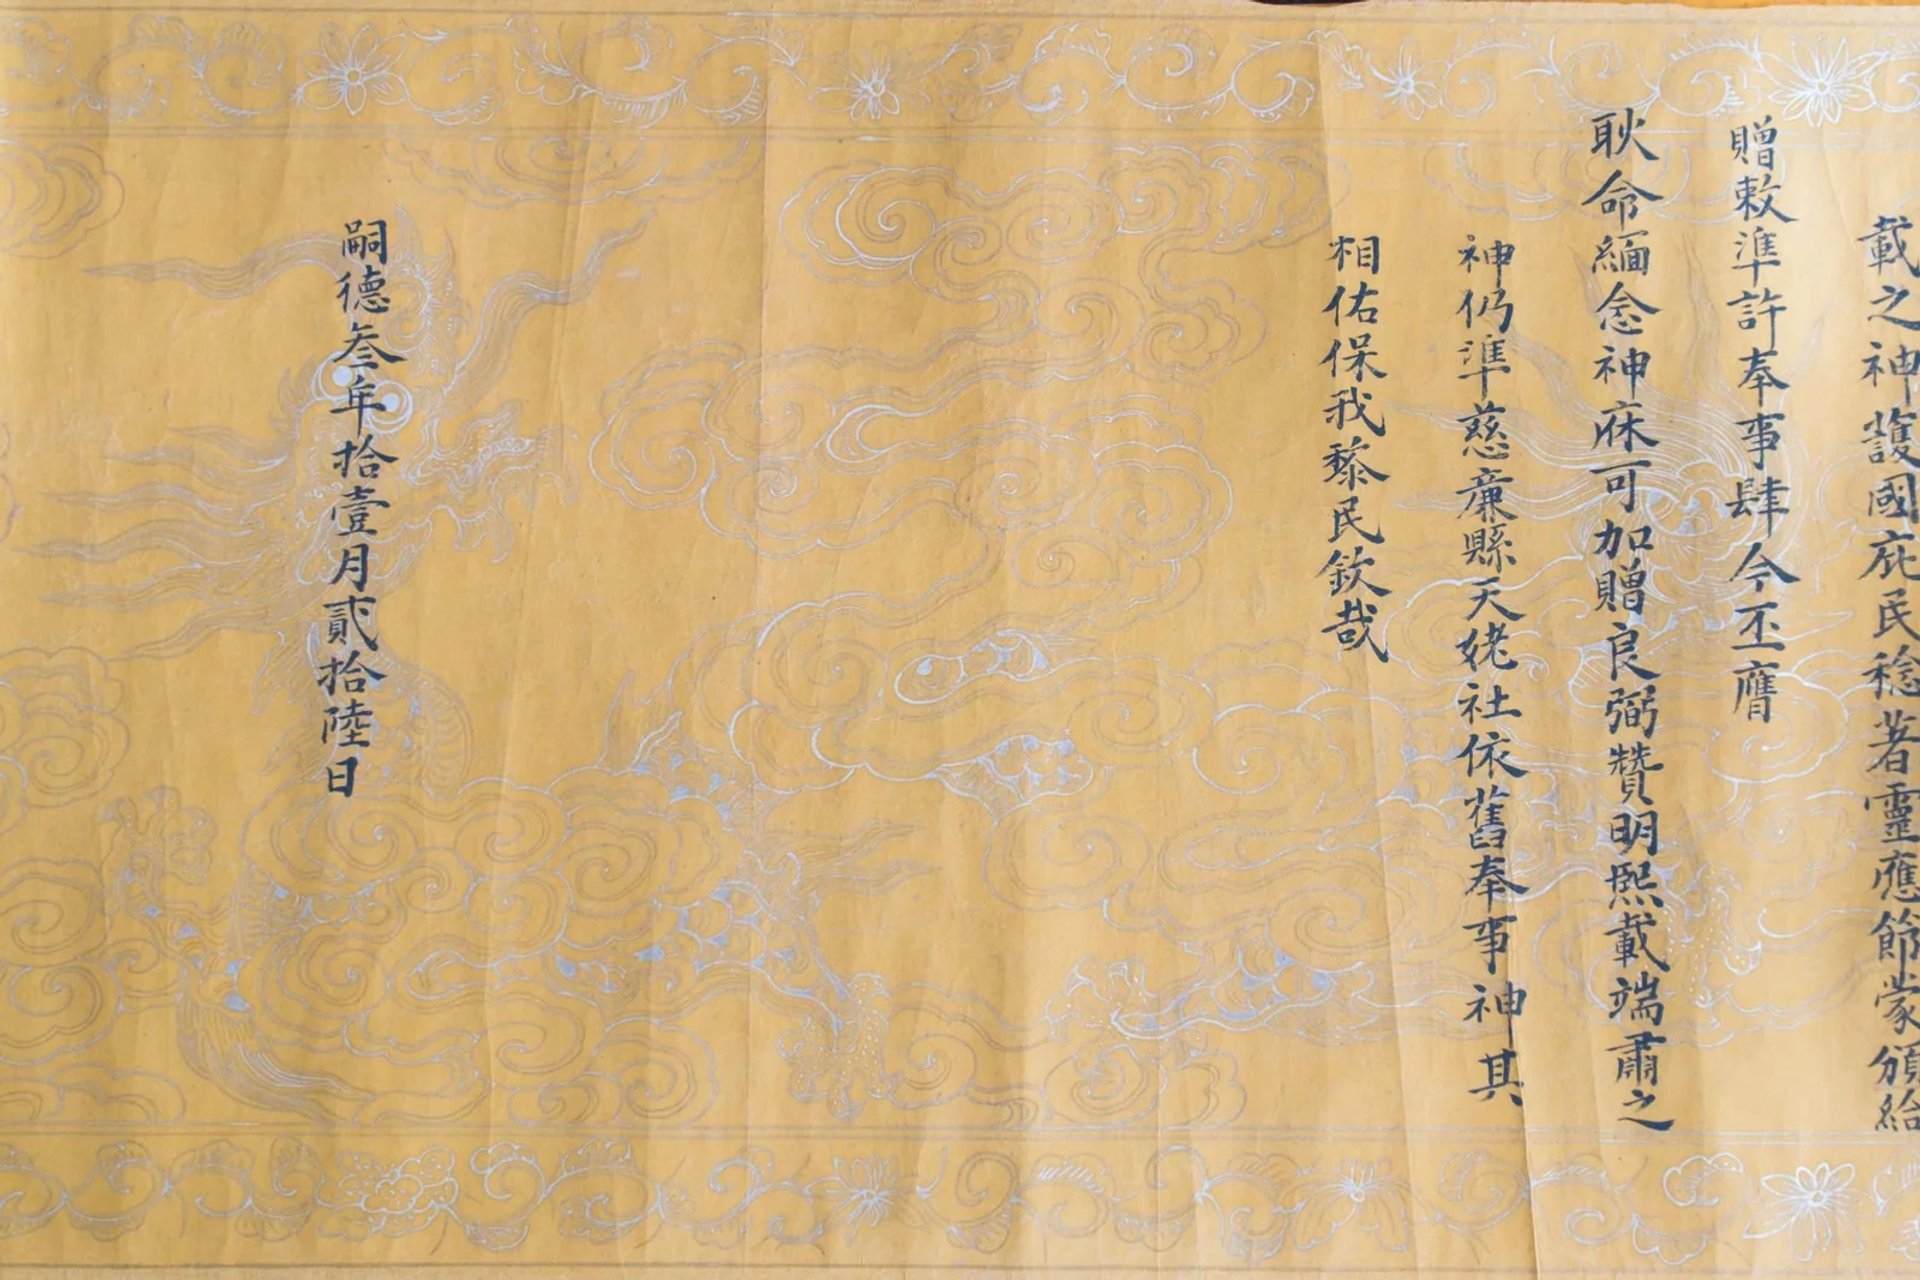 載之神護國庇民稔著靈應節蒙頒給
贈敕準許奉事肆今丕膺
耿命緬念神庥可加贈良弼贊明熙載端肅之
神仍準慈廉縣天姥社依舊奉事神其
相佑保我黎民欽哉
嗣德叁年拾壹月貳拾陸日